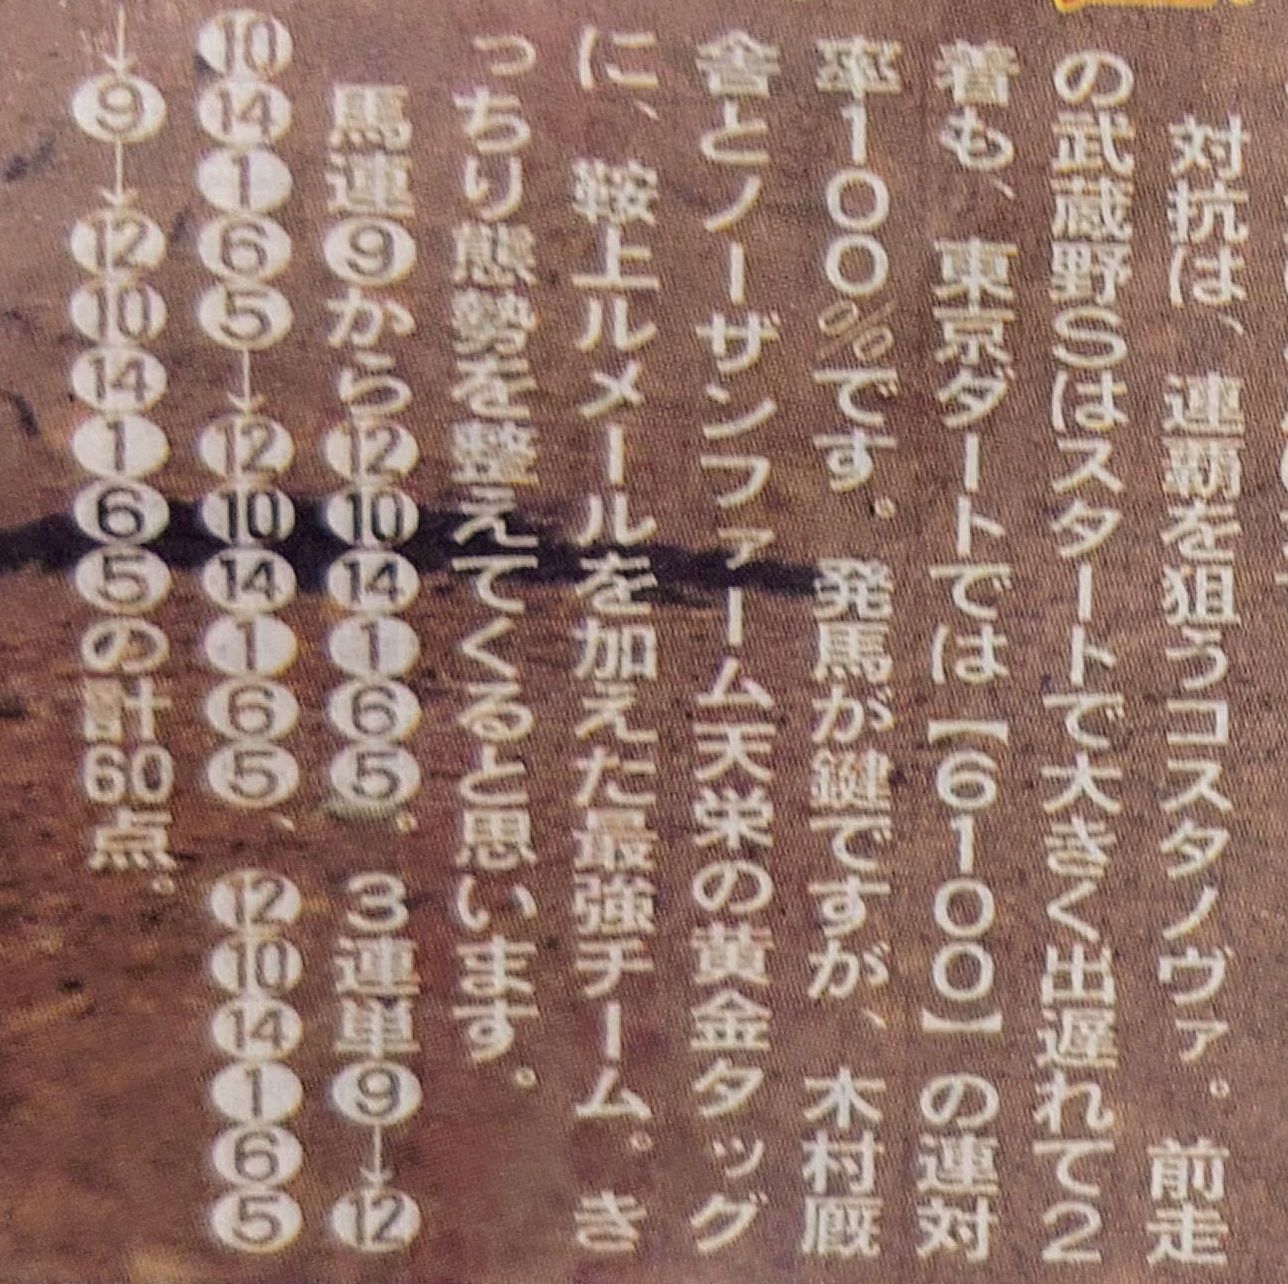 対抗は、連覇を狙うコスタノヴァ。前走
の武蔵野Sはスタートで大きく出遅れて2
着も、東京ダートでは【6100】の連対
率100%です。発馬が鍵ですが、木村厩
舎とノーザンファーム天栄の黄金タッグ
に、鞍上ルメールを加えた最強チーム。き
っちり態勢を整えてくると思います。
馬連⑨から⑫⑩⑭①⑥⑤。3連単⑨→⑫
⑩⑭①⑥⑤→⑫⑩⑭①⑥⑤、⑫⑩⑭①⑥⑤
→⑨→⑫⑩⑭①⑥⑤の計60点。